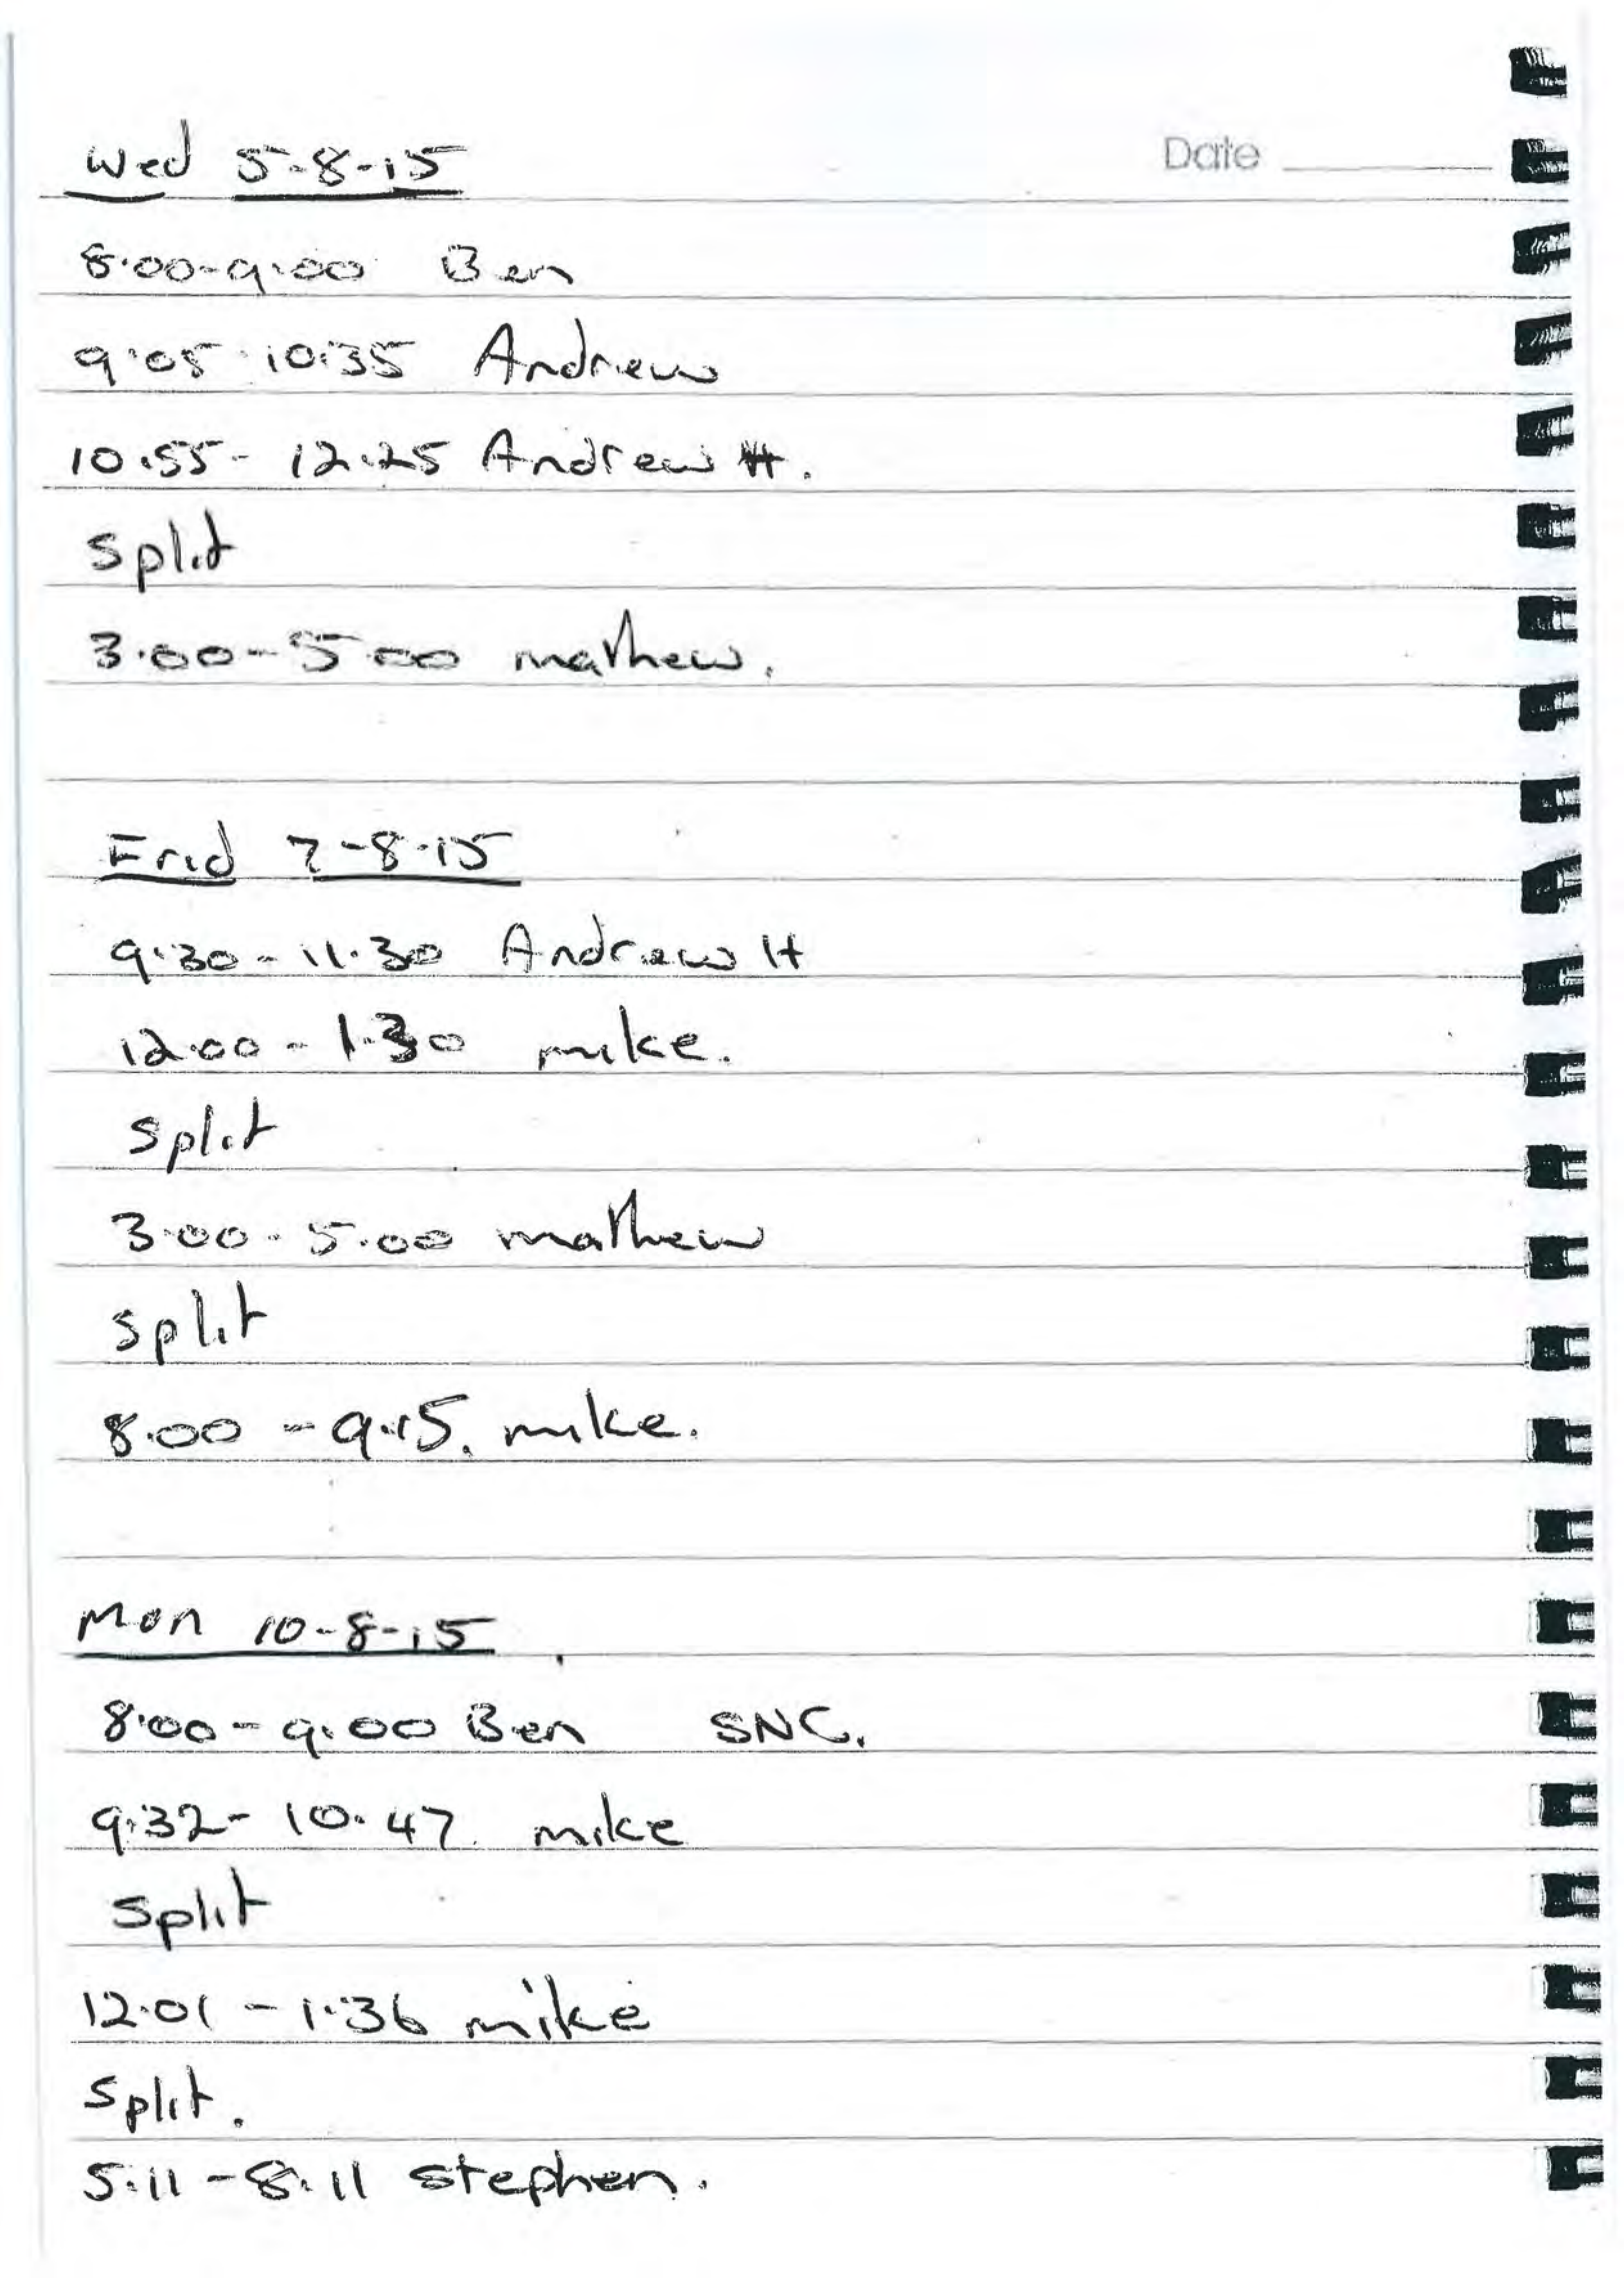 Date
Wed 5-8-15
8.00-9.00 Ben
9.05-10.35 Andrew
10.55-12.25 Andrew H.
Split
3.00-5.00 mathew.
Frid 7-8-15
9.30-11.30 Andrew H
12.00-1.30 mike.
Split
3.00-5.00 mathew
Split
8.00-9.15. mike.
Mon 10-8-15
8.00-9.00 Ben SNC.
9.32-10.47. mike
Split
12.01-1.36 mike
Split.
5.11-8.11 stephen.